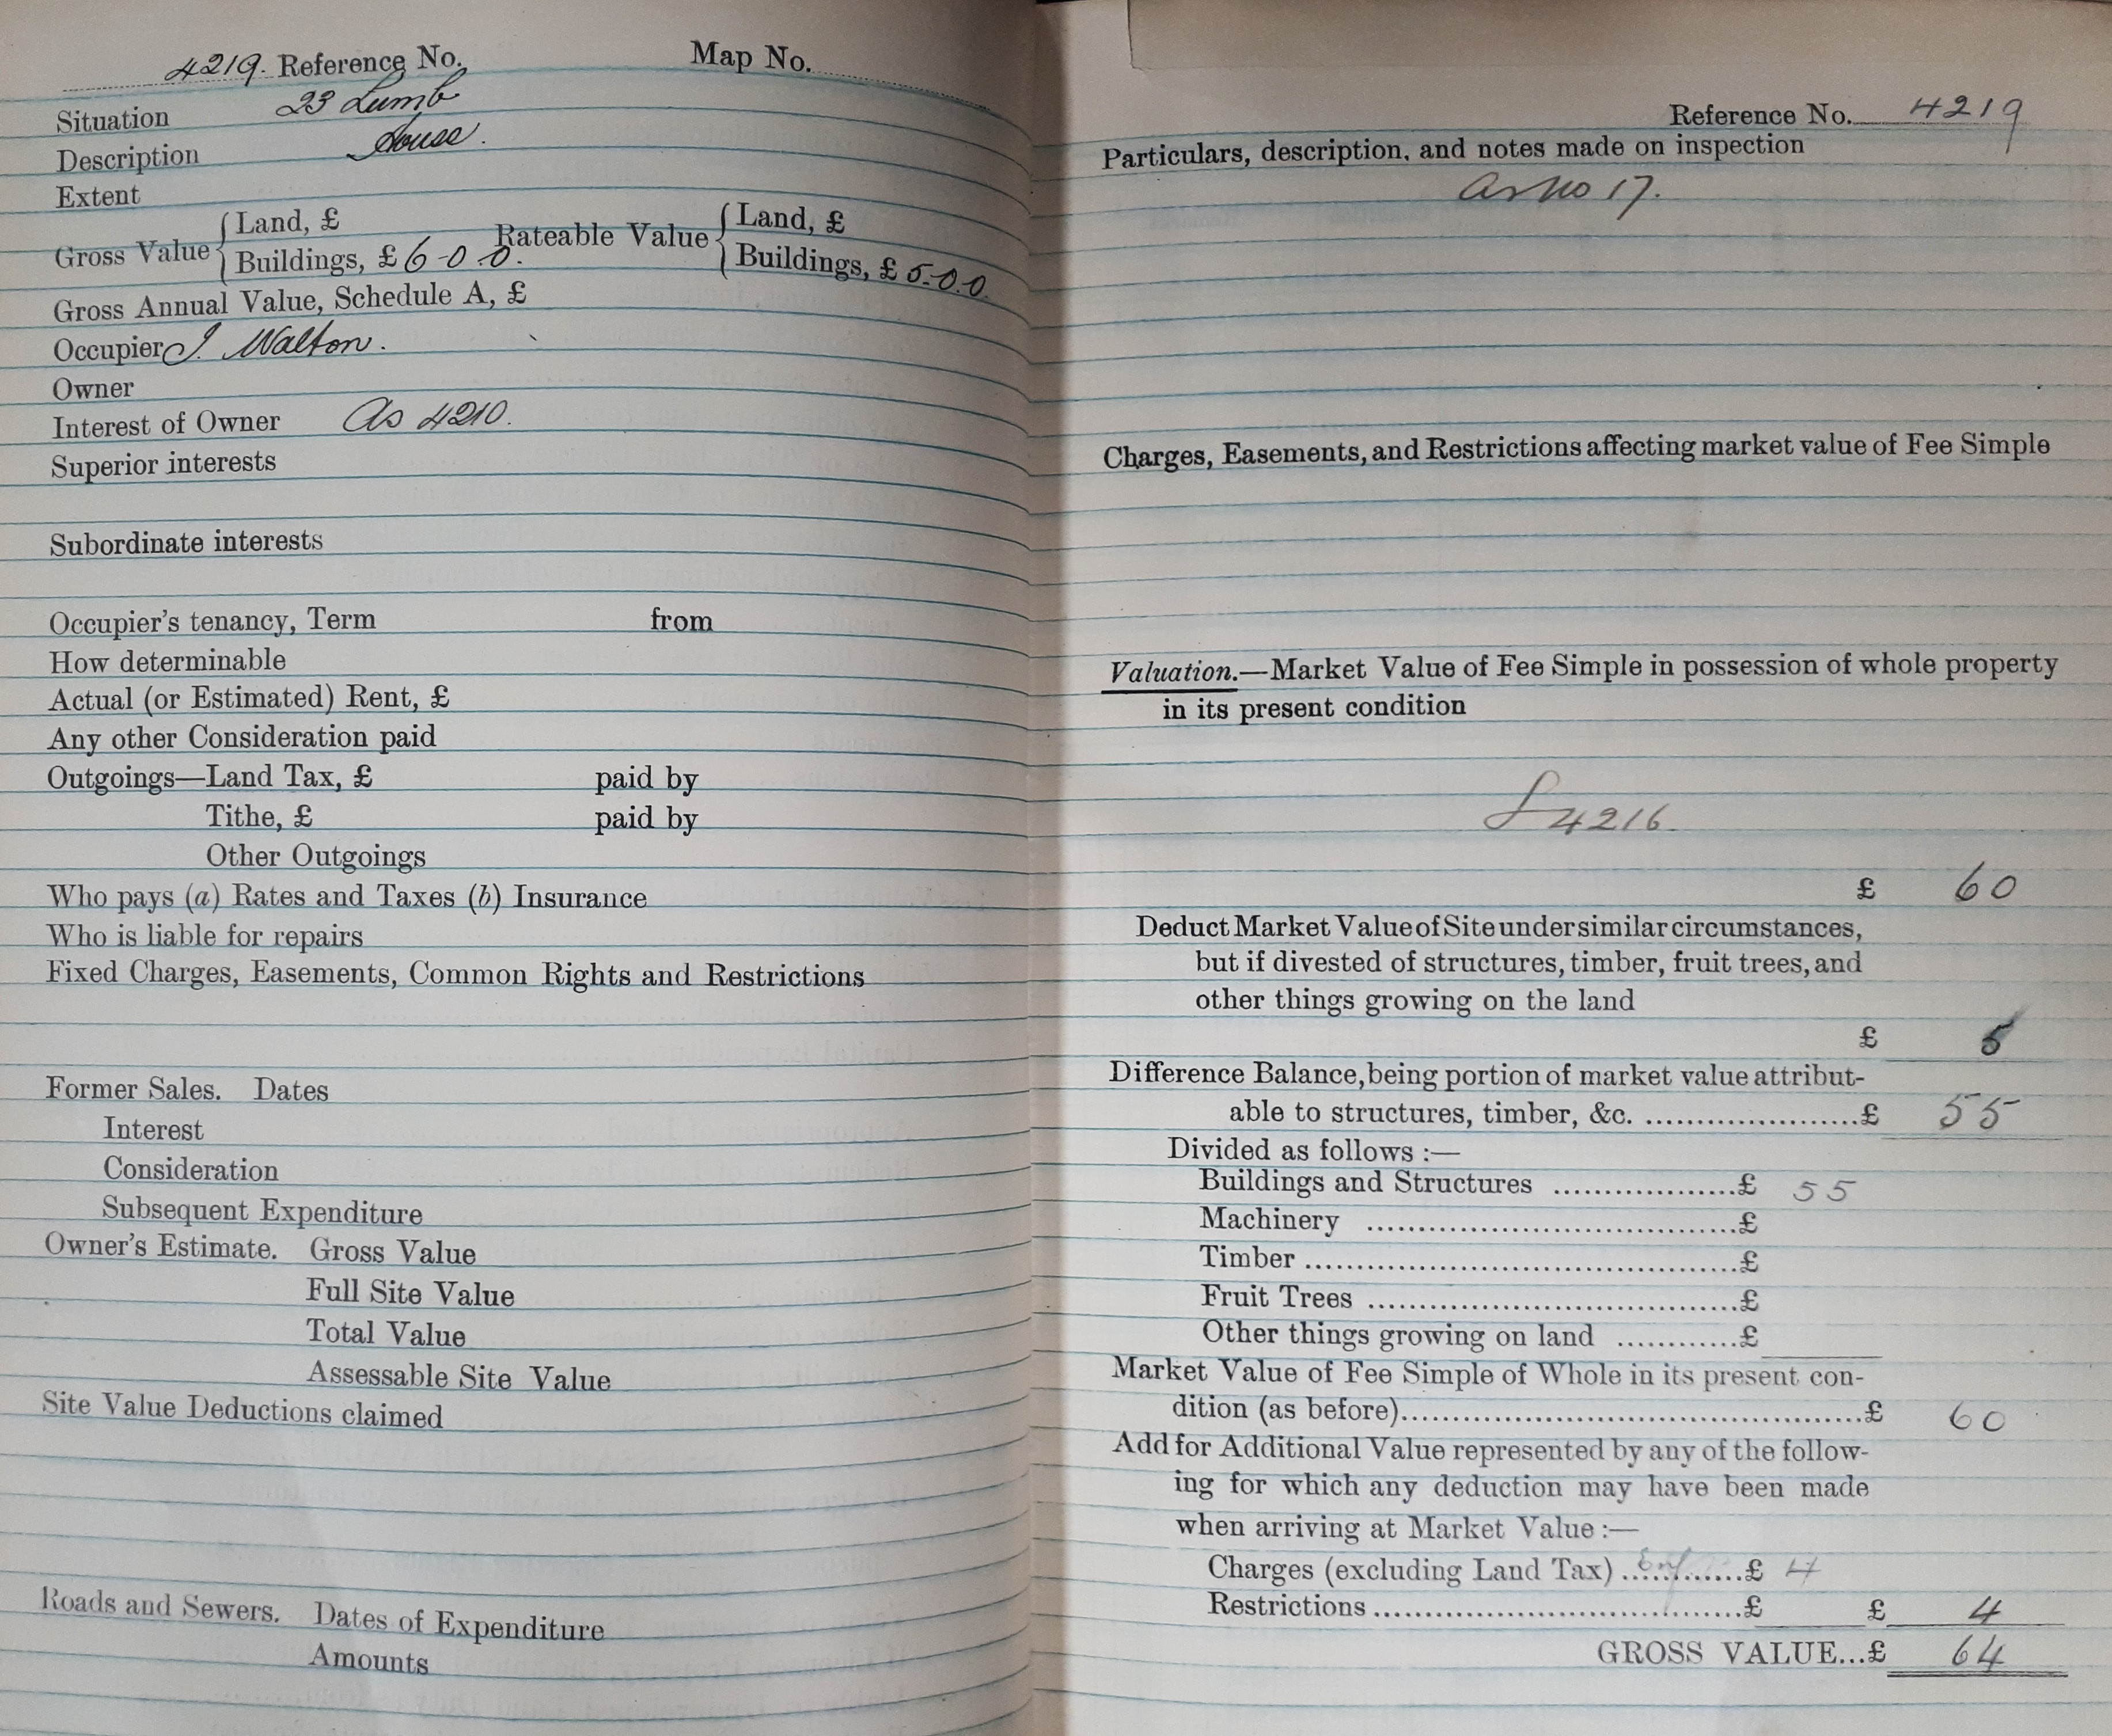 4219. Reference No. Map No.
Situation 23 Lumb
Description House.
Extent
Gross Value { Land, £ Rateable Value { Land, £
Buildings, £ 6-0-0. Buildings, £ 5-0-0.
Gross Annual Value, Schedule A, £
Occupier J. Walton.
Owner
Interest of Owner As 4210.
Superior interests
Subordinate interests
Occupier's tenancy, Term from
How determinable
Actual (or Estimated) Rent, £
Any other Consideration paid
Outgoings—Land Tax, £ paid by
Tithe, £ paid by
Other Outgoings
Who pays (a) Rates and Taxes (b) Insurance
Who is liable for repairs
Fixed Charges, Easements, Common Rights and Restrictions
Former Sales. Dates
Interest
Consideration
Subsequent Expenditure
Owner's Estimate. Gross Value
Full Site Value
Total Value
Assessable Site Value
Site Value Deductions claimed
Roads and Sewers. Dates of Expenditure
Amounts
Reference No. 4219
Particulars, description, and notes made on inspection
as no 17.
Charges, Easements, and Restrictions affecting market value of Fee Simple
Valuation.—Market Value of Fee Simple in possession of whole property
in its present condition
4216.
£ 60
Deduct Market Value of Site under similar circumstances,
but if divested of structures, timber, fruit trees, and
other things growing on the land
£ 5
Difference Balance, being portion of market value attribut-
able to structures, timber, &c. ......................£ 55
Divided as follows :—
Buildings and Structures ...................£ 55
Machinery ......................................£
Timber ............................................£
Fruit Trees ......................................£
Other things growing on land ............£
Market Value of Fee Simple of Whole in its present con-
dition (as before)................................................£ 60
Add for Additional Value represented by any of the follow-
ing for which any deduction may have been made
when arriving at Market Value :—
Charges (excluding Land Tax) ............£ 4
Restrictions ......................................£ £ 4
GROSS VALUE...£ 64